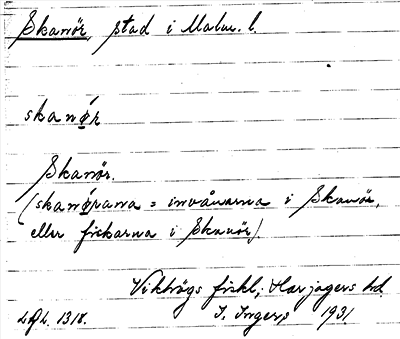 Skanör, stad i Malm. l.
skanǿr
Skanör.
(skanǿrana = invånarna i Skanör,
eller fiskarna i Skanör)
Vikhögs fiskl., Harjagers hd.
I. Ingers 1931
1318.